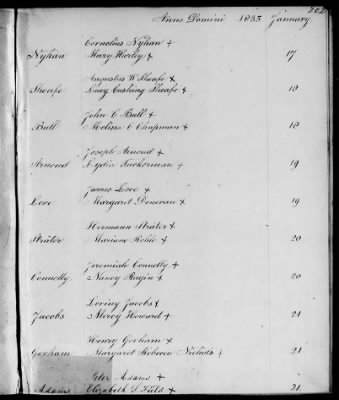 202
Anno Domini 1853 January
Cornelius Nyhan +
Nyhan Mary Hurley + 17
Augustus W Sheafe +
Sheafe Lucy Cushing Sheafe + 18
John C. Bull +
Bull Melissa C Chapman + 18
Joseph Arnoud +
Arnoud Lydia Tuckerman + 19
James Love +
Love Margaret Donovan + 19
Hermann Strater +
Strater Mariane Rohle + 20
Jeremiah Connolly +
Connolly Nancy Ragin + 20
Loring Jacobs +
Jacobs Mercy Howard + 21
Henry Gorham +
Gorham Margaret Rebecca Nichols + 21
Peter Adams +
Adams Elizabeth S Field + 21